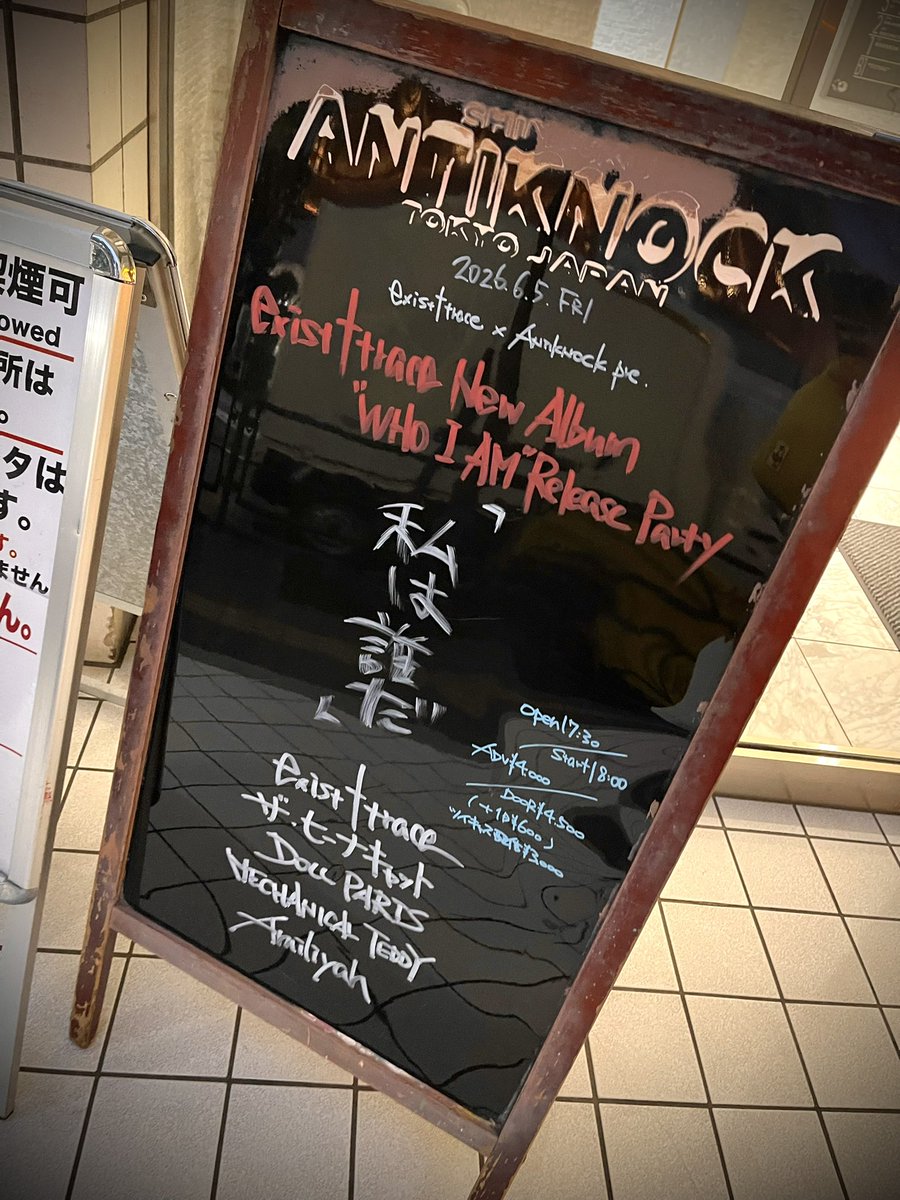 ANTIKNOCK
TOKYO JAPAN
2026.6.5. FRI
exist†trace × Antiknock pre.
exist†trace New Album
"WHO I AM" Release Party
「私は誰だ」
Open17:30
Start18:00
ADV¥4.000
DOOR¥4.500
(+1D¥600)
ツイキャス配信¥3.000
exist†trace
ザ・ヒーナキャット
DOLL PARTS
MECHANICAL TEDDY
Amiliyah
煙可
owed
所は
。
タは
す。
す。
ません
ん。